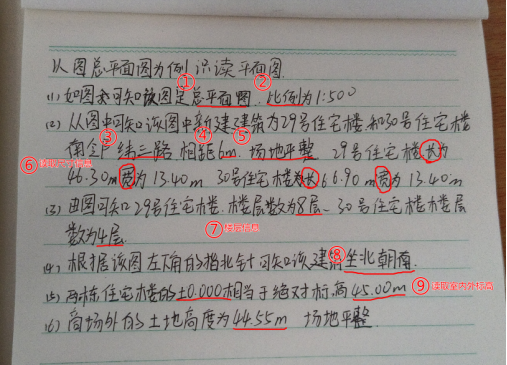 从图总平面图为例 识读平面图
① ②
(1) 如图示可知该图是总平面图. 比例为1:500
(2) 从图中可知该图中新建建筑为29号住宅楼和30号住宅楼
③ ④ ⑤
南全户纬三路 相距6m. 场地平整 29号住宅楼长为
⑥读取尺寸信息
46.30m宽为13.40m 30号住宅楼为长66.90m宽为13.40m
(3) 由图可知29号住宅楼.楼层数为8层、30号住宅楼楼层
数为4层. ⑦楼层信息
⑧
(4) 根据该图左下角的指北针可知该建筑坐北朝南.
⑨读取室内外标高
(5) 两栋住宅楼的±0.000相当于绝对标高45.00m
(6) 商场外的土地高度为44.55m 场地平整.